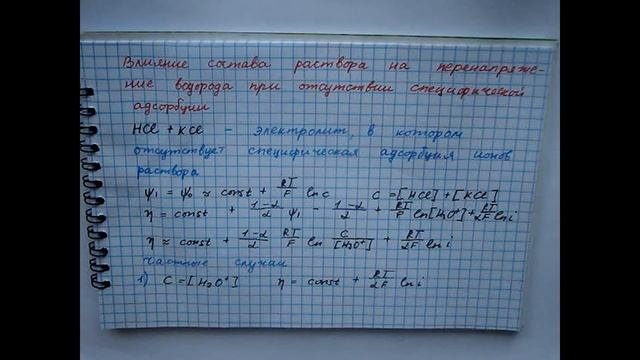 Влияние состава раствора на перенапряже-
ние водорода при отсутствии специфической
адсорбции
HCl + KCl – электролит, в котором
отсутствует специфическая адсорбция ионов
раствора
ψ₁ = ψ₀ ≈ const + RT/F ln c   C = [HCl] + [KCl]
η = const + (1-α)/α ψ₁ - (1-α)/α + RT/F ln[H₃O⁺] + RT/αF ln i
η ≈ const + (1-α)/α RT/F ln C/[H₃O⁺] + RT/αF ln i
Частные случаи
1) C = [H₃O⁺]   η = const + RT/αF ln i